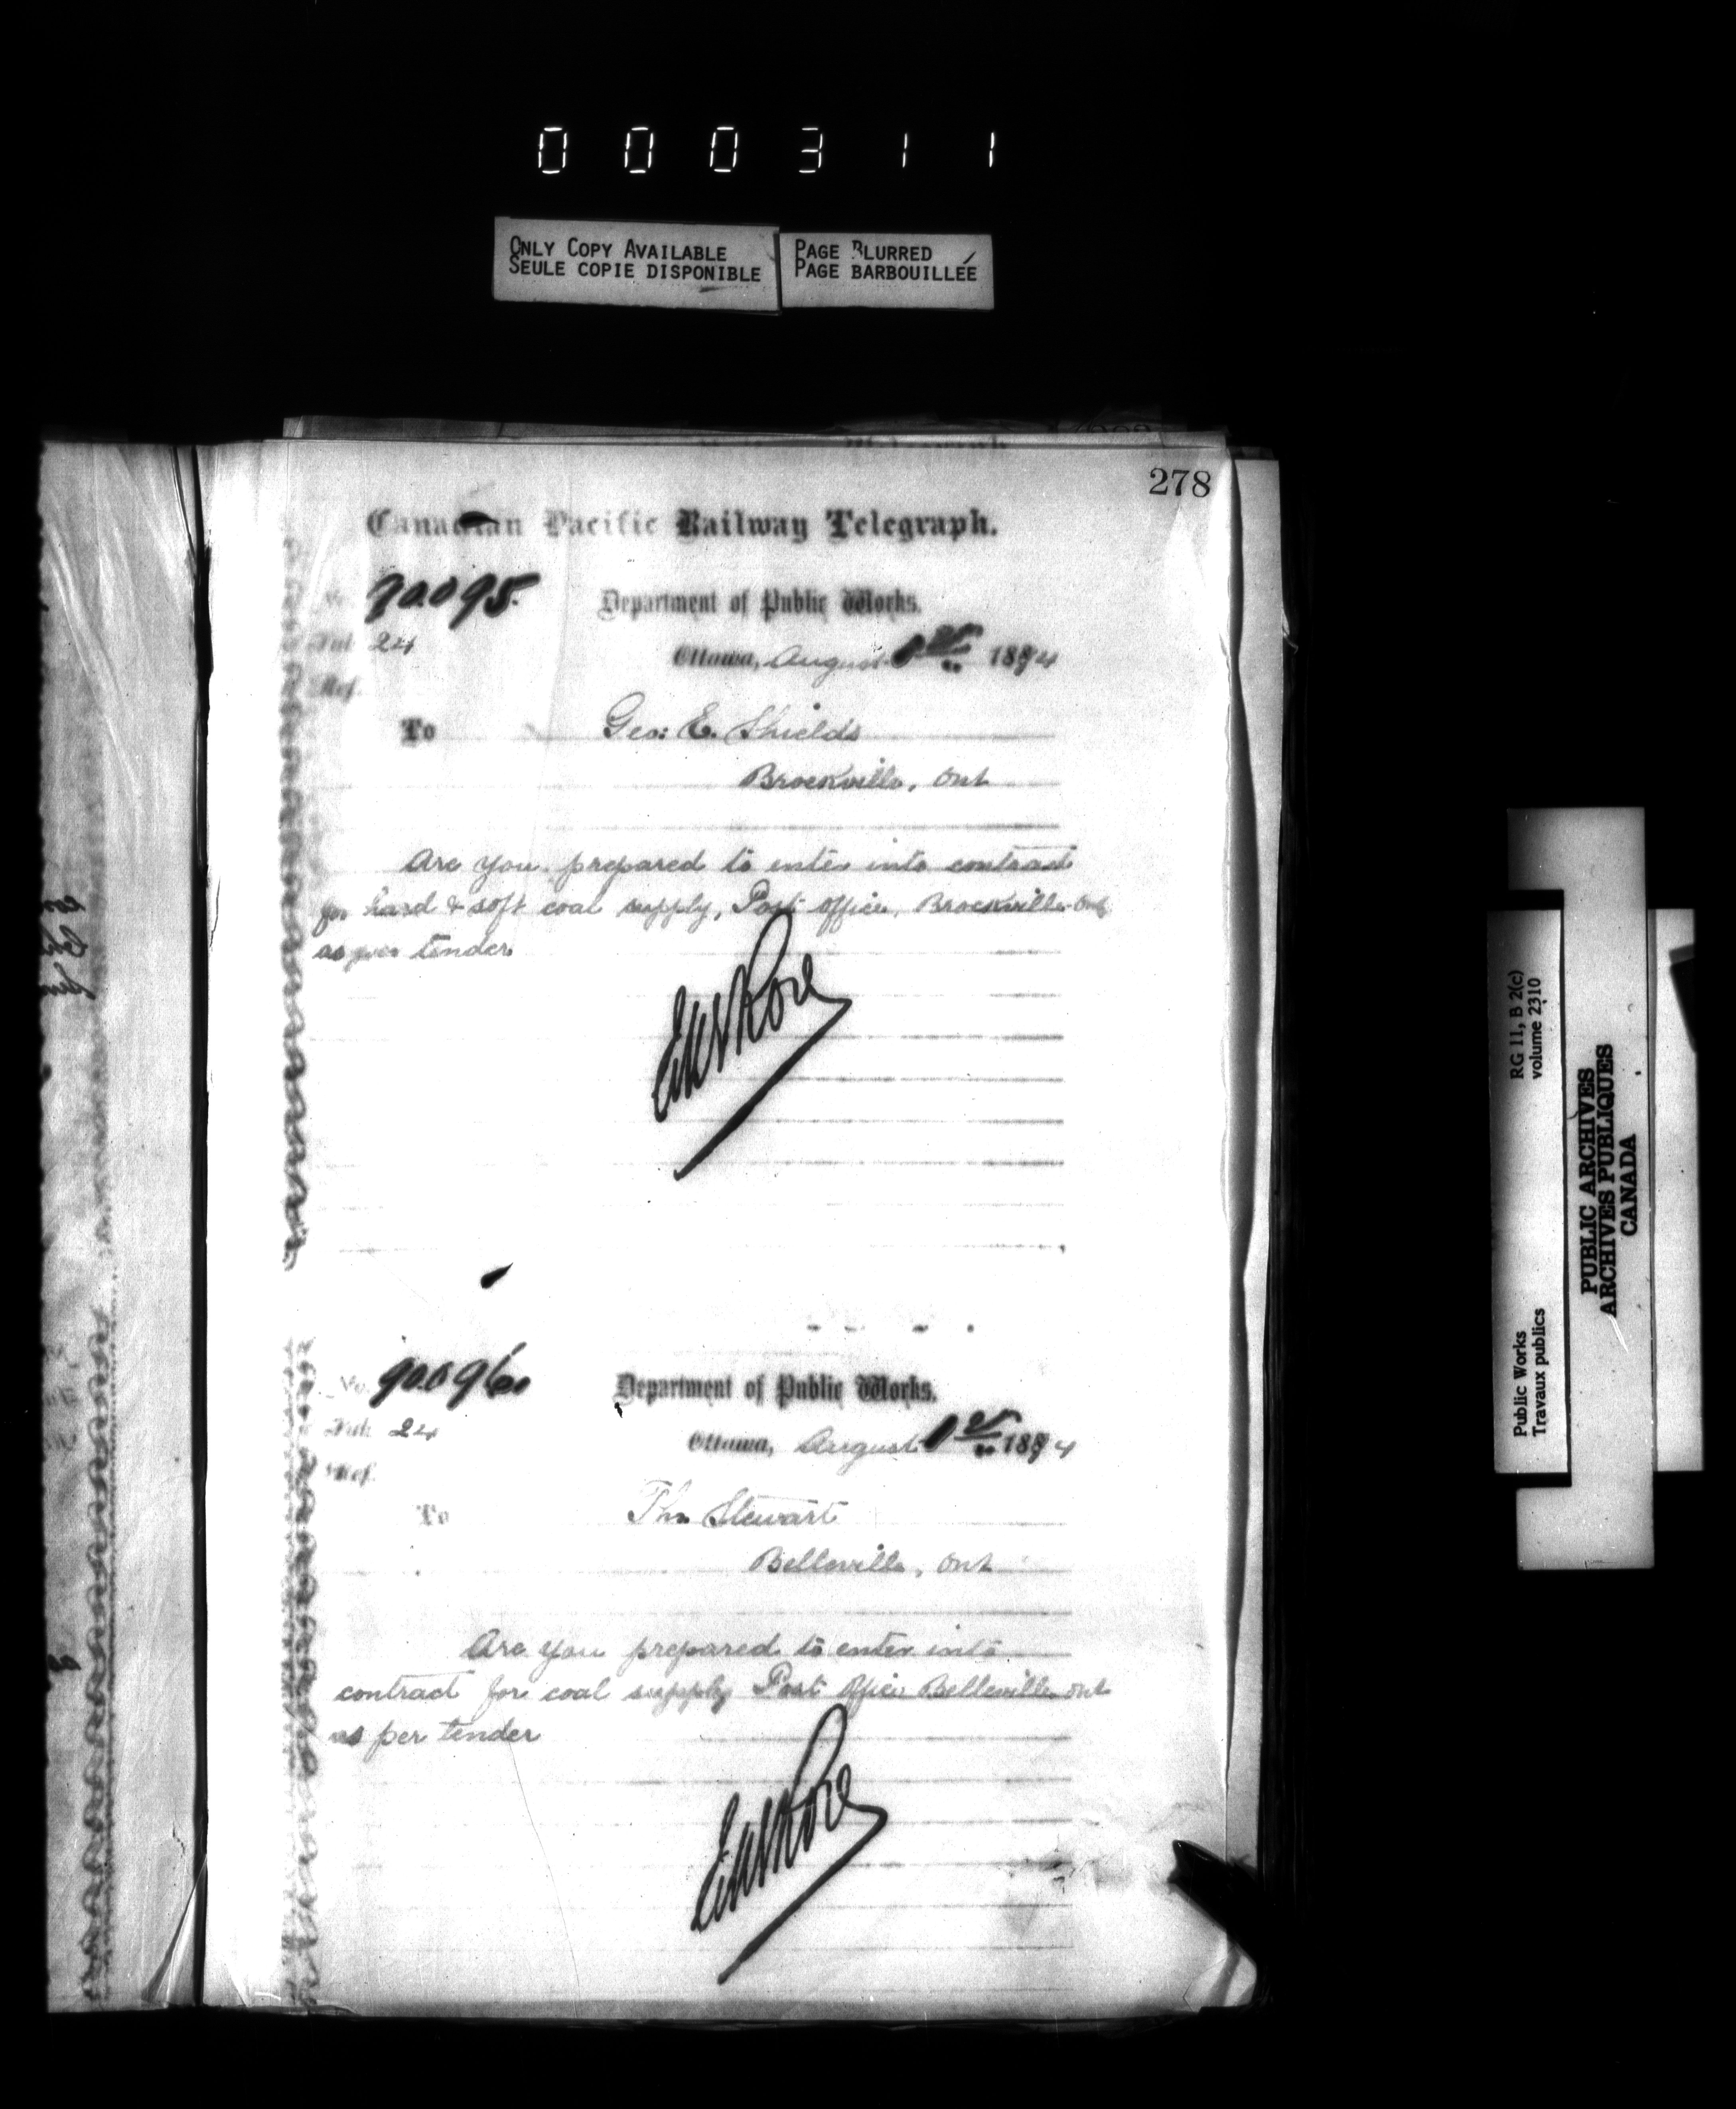 000311
ONLY COPY AVAILABLE
SEULE COPIE DISPONIBLE
PAGE BLURRED
PAGE BARBOUILLÉE
278
Canadian Pacific Railway Telegraph.
No. 90.095.
Department of Public Works.
Sub. 24
Ottawa, August 1st 1894
Ref.
To Geo: E. Shields
Brockville, Ont
Are you prepared to enter into contract
for hard & soft coal supply, Post office, Brockville Ont
as per tender
No. 90.096.
Department of Public Works.
Sub. 24
Ottawa, August 1st 1894
Ref.
To Thos Stewart
Belleville, Ont
Are you prepared to enter into
contract for coal supply Post Office Belleville Ont
as per tender
RG 11, B 2(c)
volume 2310
Public Works
Travaux publics
PUBLIC ARCHIVES
ARCHIVES PUBLIQUES
CANADA